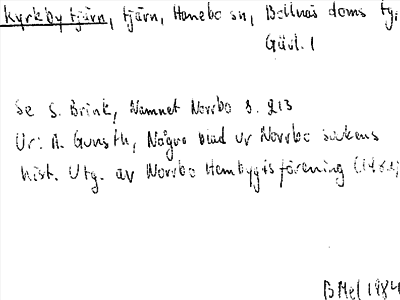 Kyrkbytjärn, tjärn, Hanebo sn, Bollnäs doms tg,
Gävl. l
Se S. Brink, Namnet Norrbo s. 213
Ur: A. Gunsth, Några blad ur Norrbo sockens
hist. Utg. av Norrbo Hembygdsförening
B Mel 1984